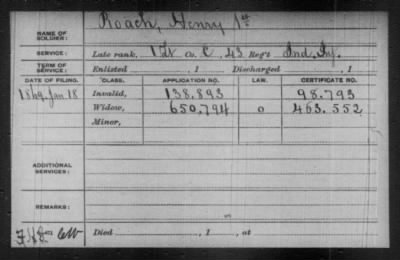 NAME OF SOLDIER: Roach, Henry 1st
SERVICE: Late rank, 1 Lt Co. C, 43 Reg't Ind. Inf.
TERM OF SERVICE: Enlisted , 1 Discharged , 1
DATE OF FILING. CLASS. APPLICATION NO. LAW. CERTIFICATE NO.
1869, Jan 18 Invalid, 138.893 98.793
Widow, 650,794 0 463.552
Minor,
ADDITIONAL SERVICES:
REMARKS:
Died , 1 , at